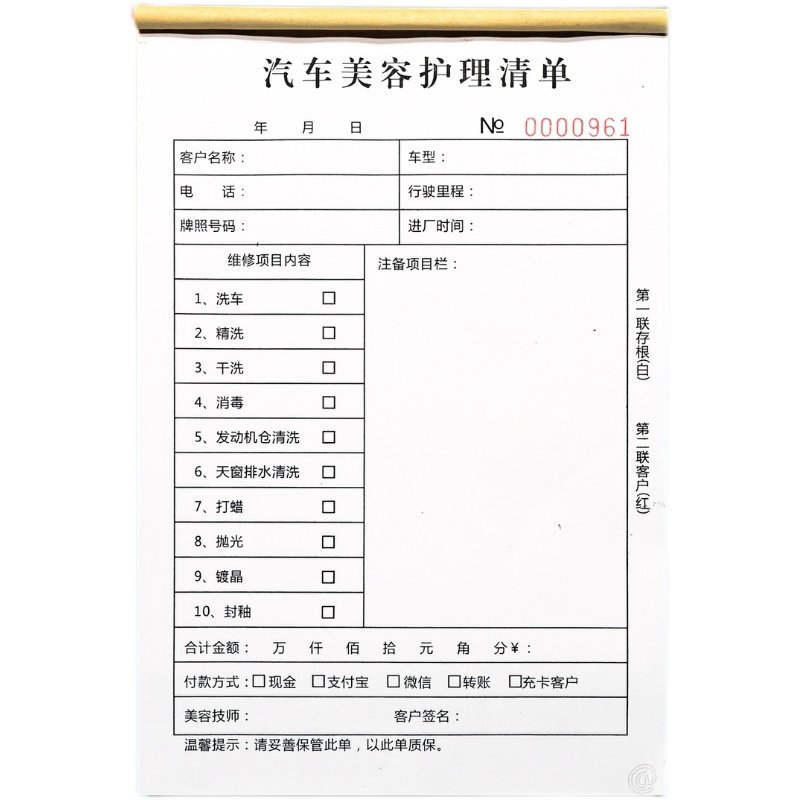 汽车美容护理清单
年 月 日 № 0000961
客户名称： 车型：
电 话： 行驶里程：
牌照号码： 进厂时间：
维修项目内容 注备项目栏：
1、洗车 □
2、精洗 □
3、干洗 □
4、消毒 □
5、发动机仓清洗 □
6、天窗排水清洗 □
7、打蜡 □
8、抛光 □
9、镀晶 □
10、封釉 □
合计金额： 万 仟 佰 拾 元 角 分￥：
付款方式：□现金 □支付宝 □微信 □转账 □充卡客户
美容技师： 客户签名：
温馨提示：请妥善保管此单，以此单质保。
第一联存根(白)
第二联客户(红)